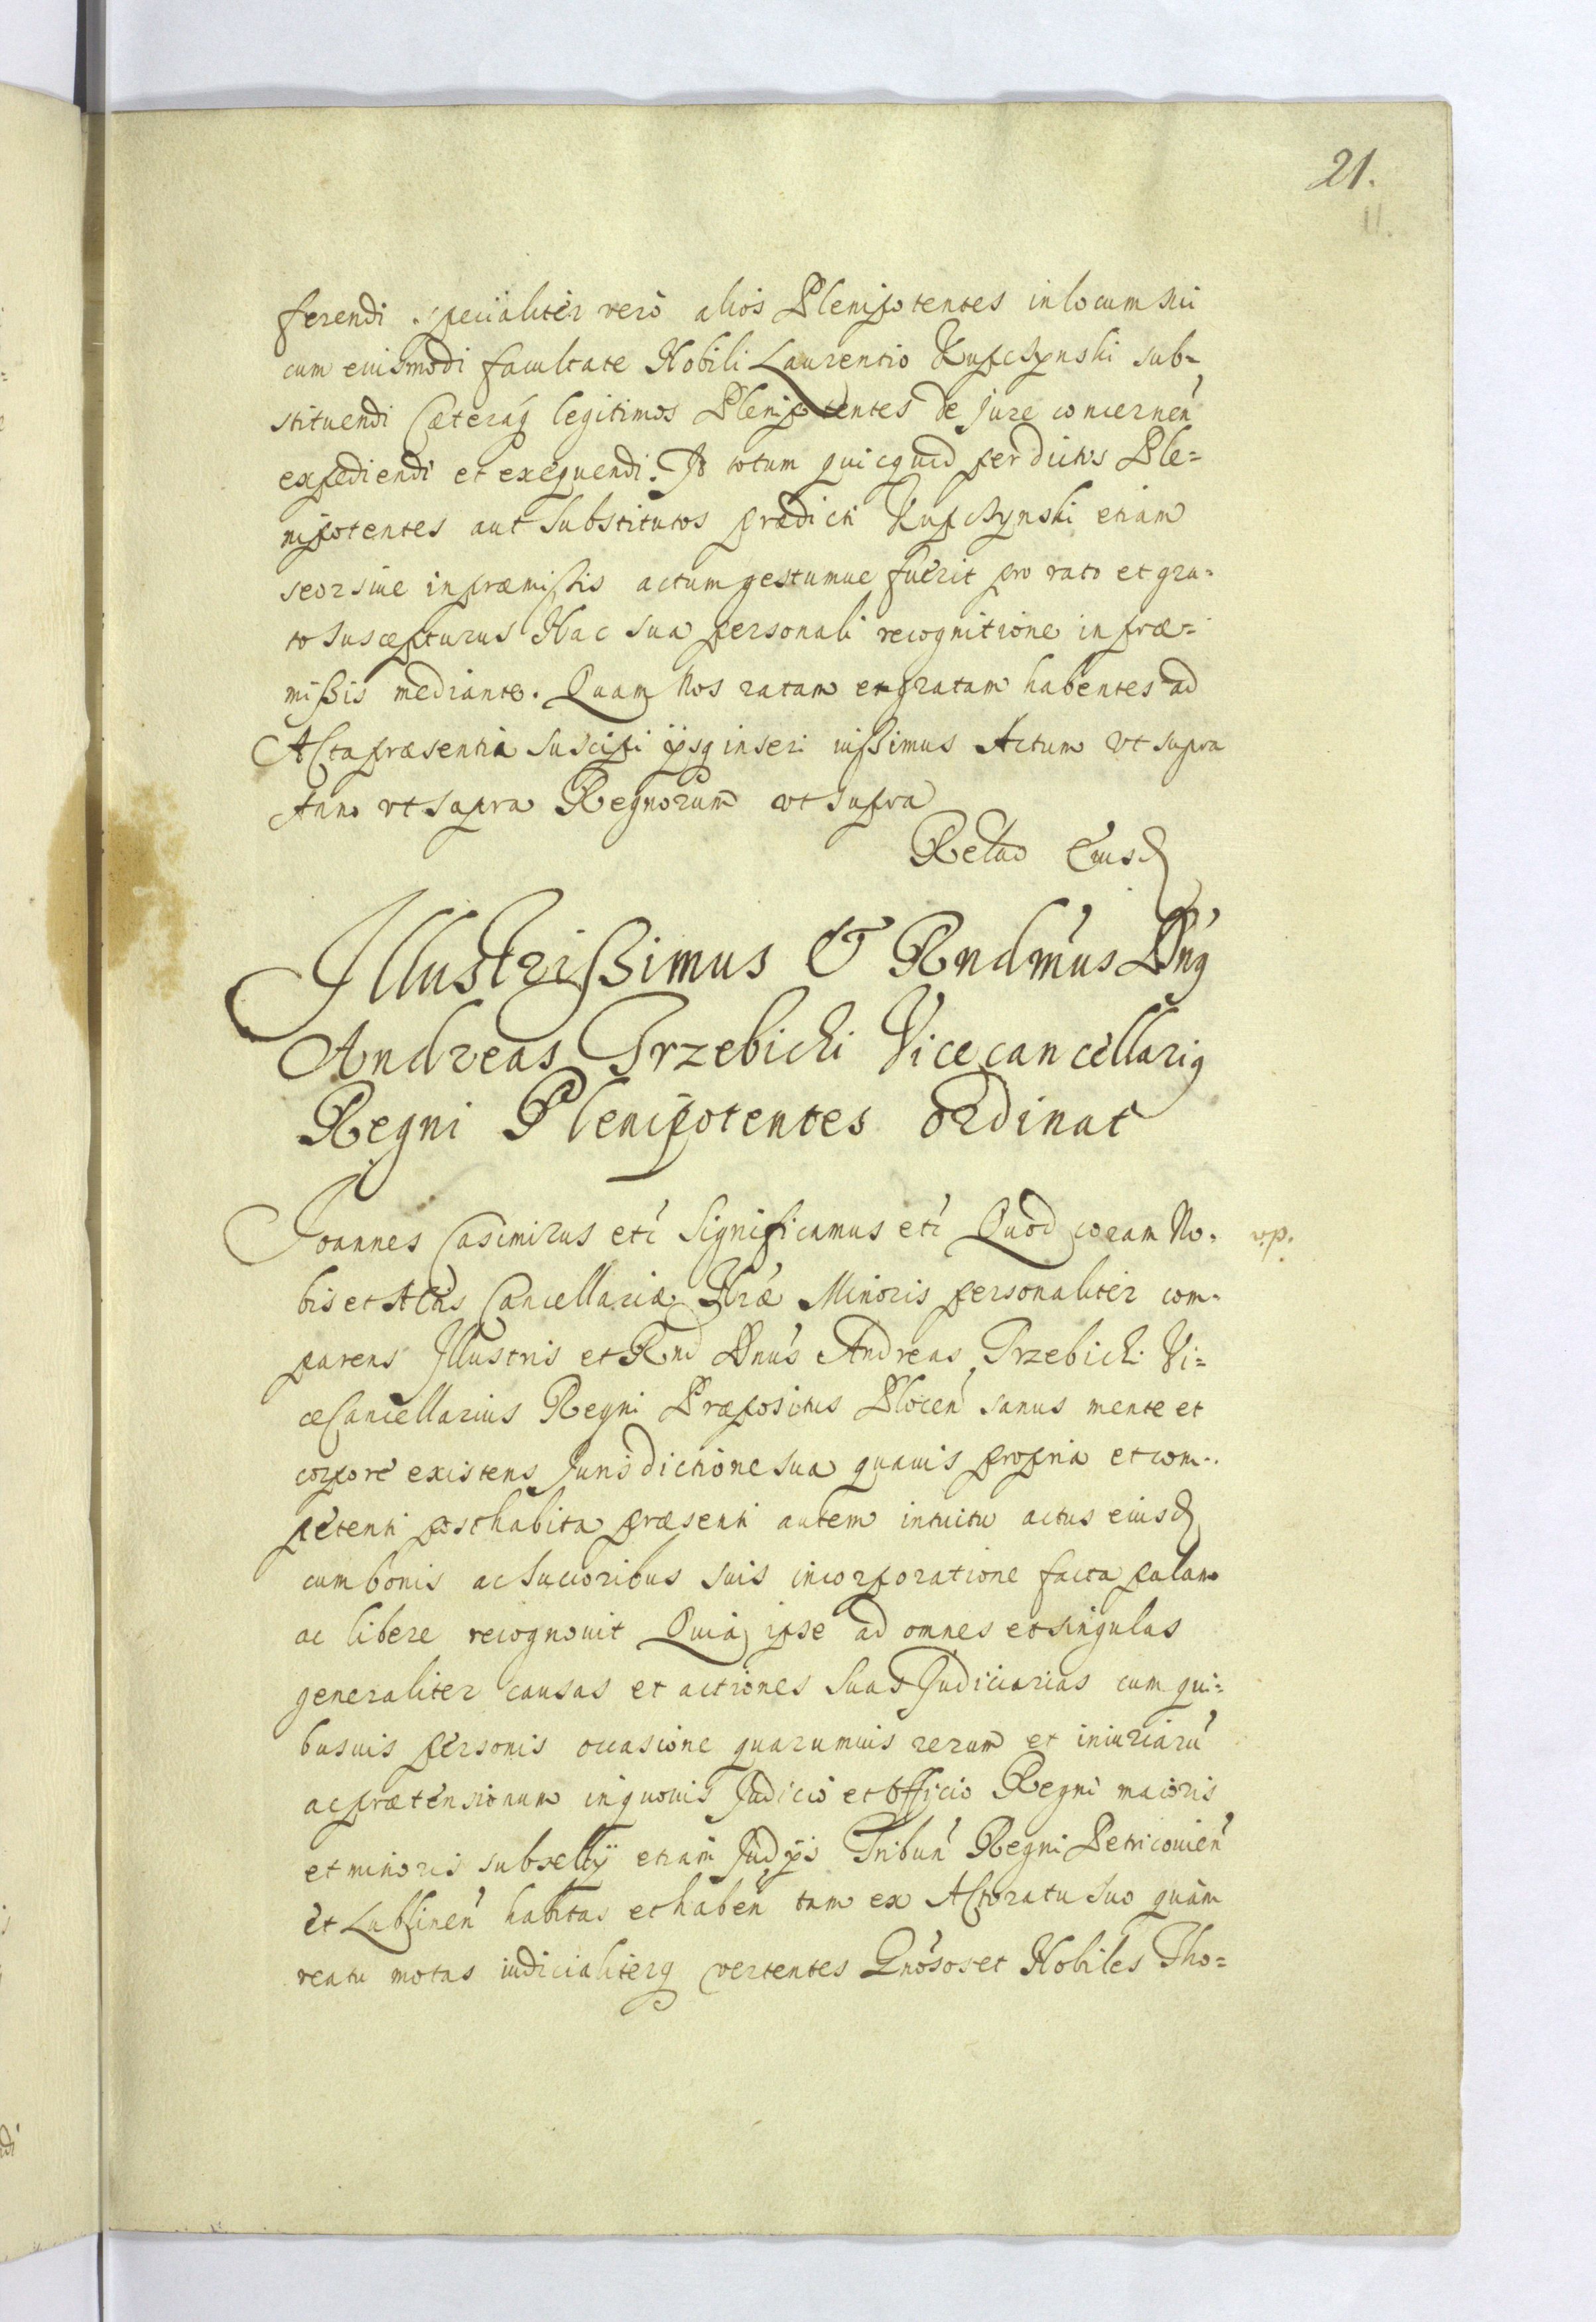 21.
11.
ferendi specialiter vero alios Plenipotentes in locum sui
cum eiusmodi facultate Nobili Laurentio Kupczynski sub-
stituendi Cæteraq legitimos Plenipotentes de Jure concernen
expediendi et exequendi. Id totum quicquid per dictos Ple=
nipotentes aut Substitutos prædicti Kupczynski etiam
seorsiue in præmissis actum gestumue fuerit pro rato et gra-
to suscepturus Hac sua personali recognitione in præ=
missis mediante. Quam Nos ratam et gratam habentes ad
Acta præsentia suscipi ijsq inseri iussimus Actum vt supra
Anno vt supra Regnorum vt supra
Relatio Eiusd
Illustrissimus & Rndmus Dnq
Andreas Trzebicki Vicecancellariq
Regni Plenipotentes ordinat
Joannes Casimirus etc Significamus etc Quod coram No-
v.p.
bis et Actis Cancellariæ Nræ Minoris personaliter com-
parens Jllustris et Rnd Dnus Andreas Trzebicki Vi=
ceCancellarius Regni Præpositus Plocen sanus mente et
corpore existens Jurisdictione sua quauis propria et com-
petenti posthabita præsenti autem intuitu actus eiusd
cum bonis ac Succoribus suis incorporatione facta palam
ac libere recognouit Quia ipse ad omnes et singulas
generaliter causas et actiones suas Judiciarias cum qui=
busuis personis occasione quarumuis rerum et iniuriaru
ac prætensionum in quouis Judicio et Officio Regni maioris
et minoris subsellij etiam Judijs Tribun Regni Petricouien
et Lublinen habitas et haben tam ex Actoratu suo quam
reatu motas iudicialiterq vertentes Gnosos et Nobiles Tho=